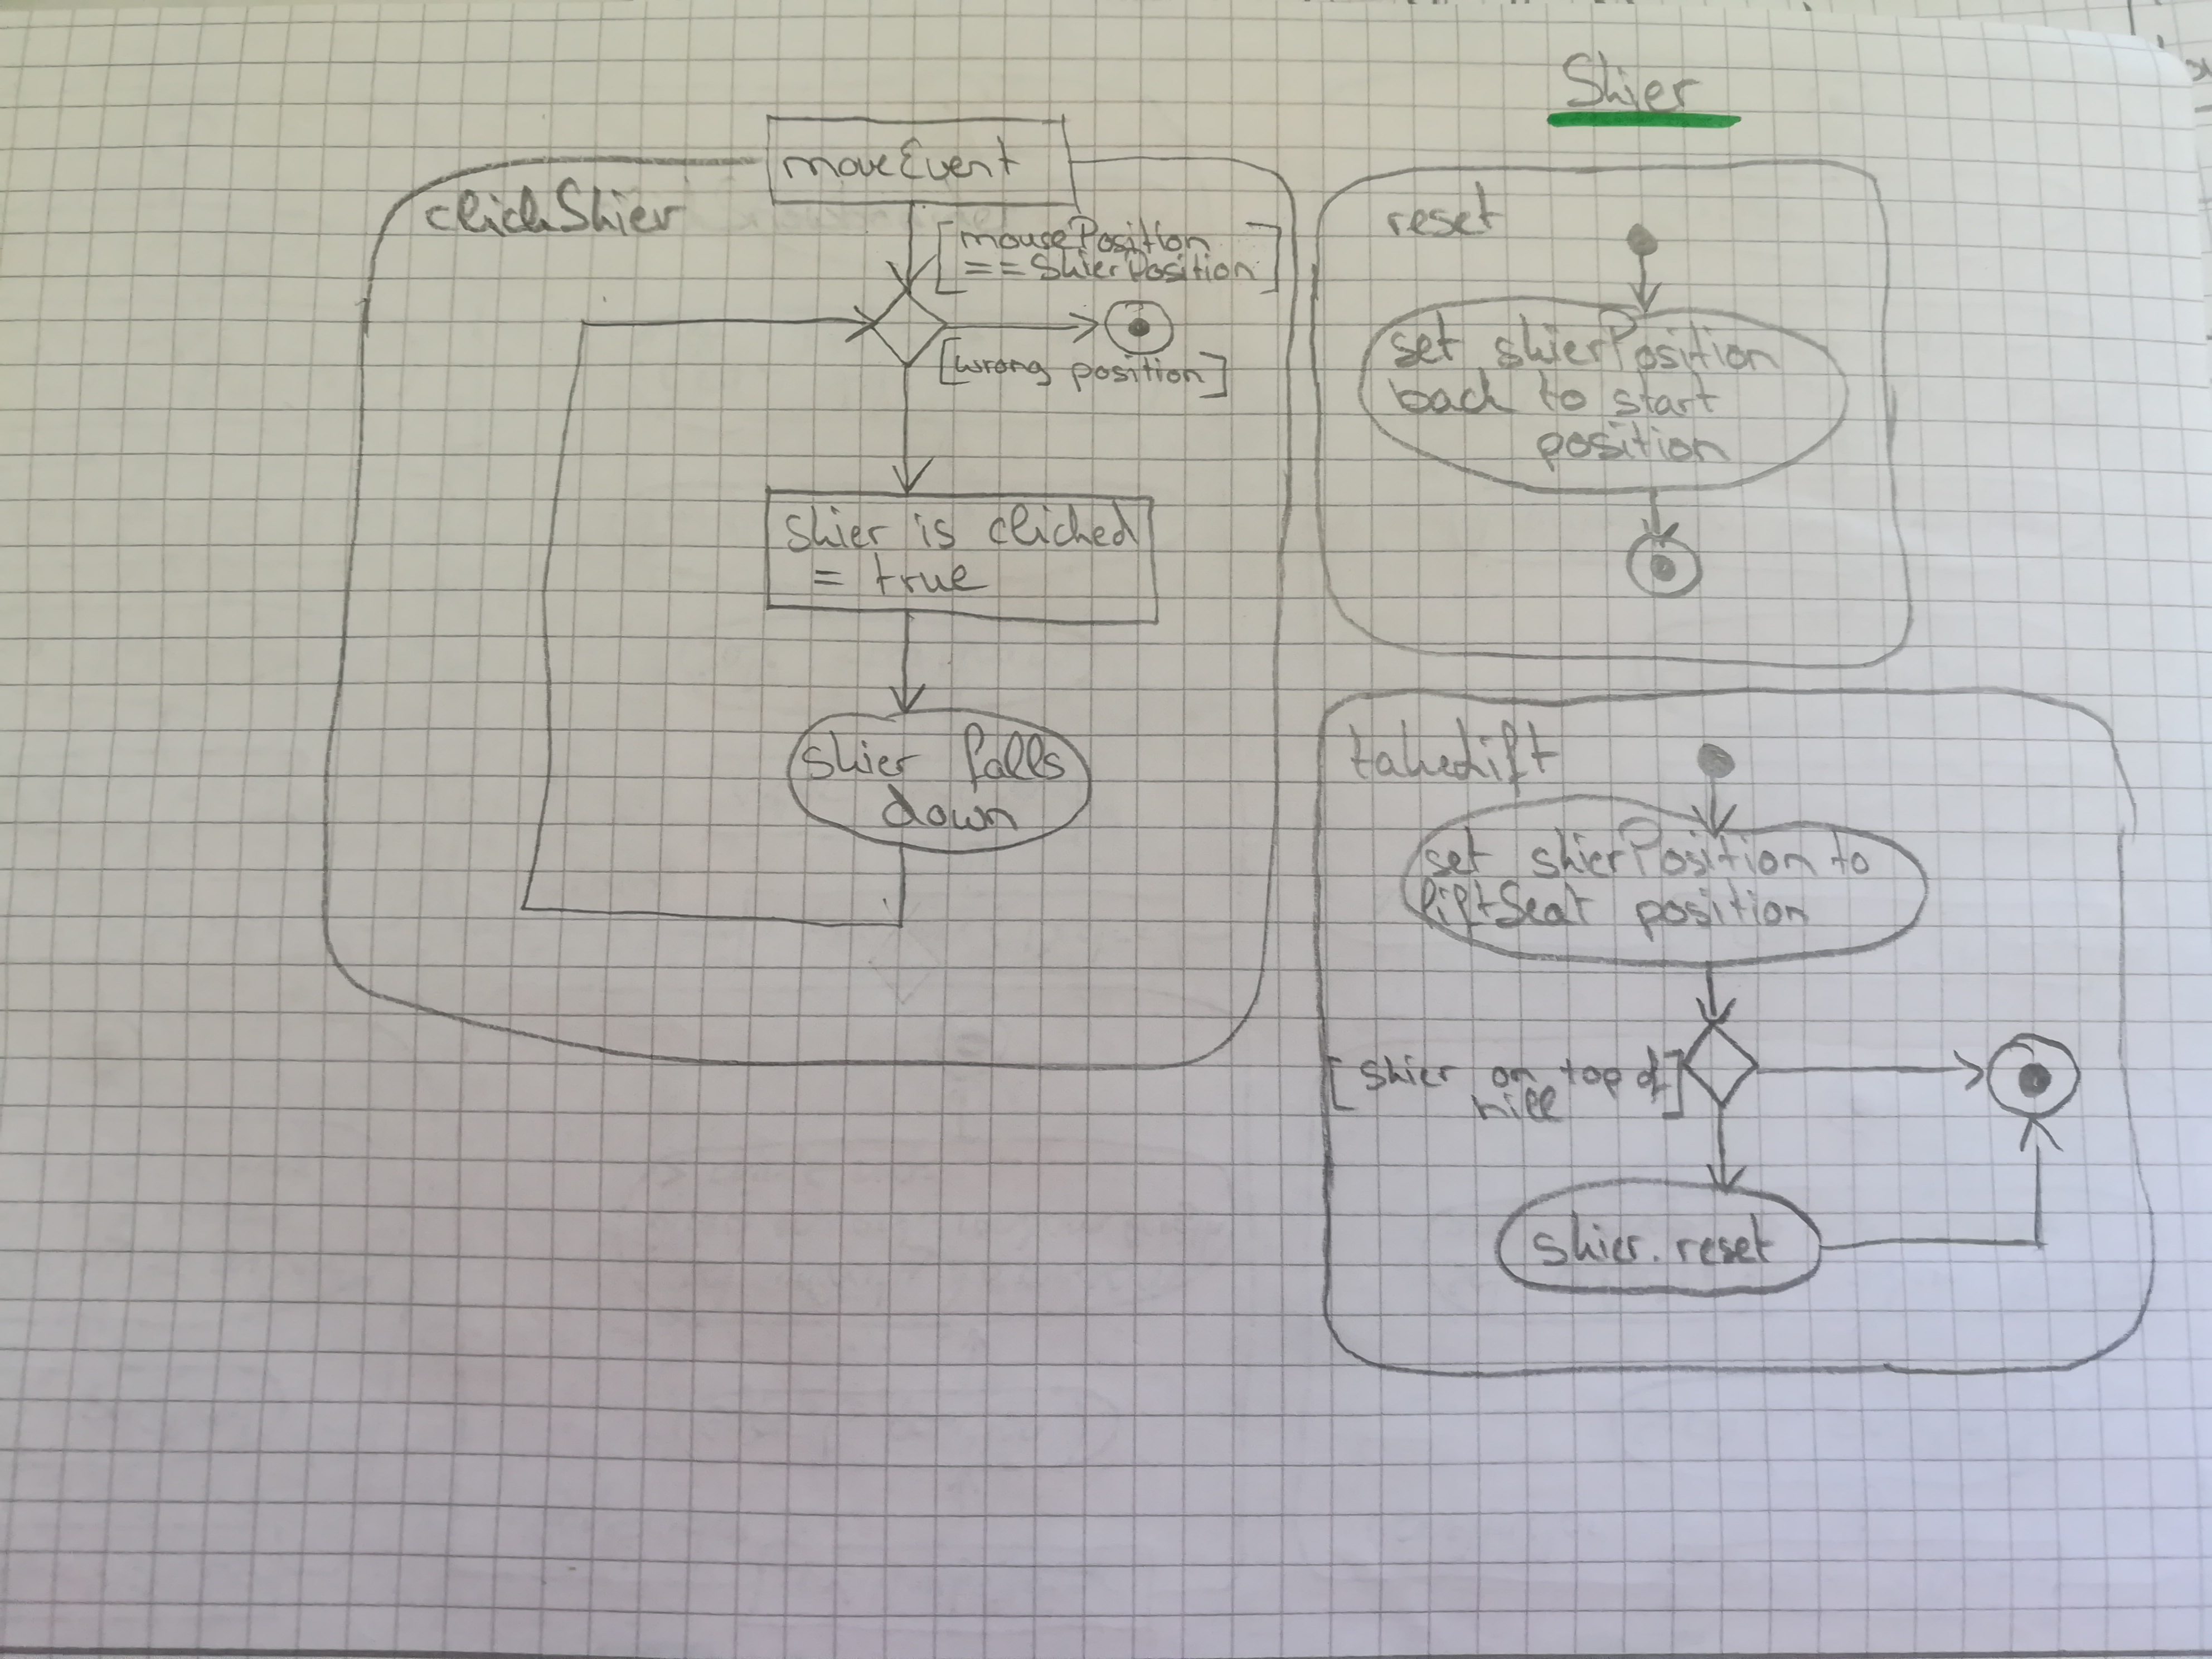 Skier
moveEvent
clickSkier
[mousePosition
==SkierPosition]
[wrong position]
skier is clicked
= true
skier falls
down
reset
set skierPosition
back to start
position
takeLift
set skierPosition to
liftSeat position
[skier on top of
hill]
skier.reset